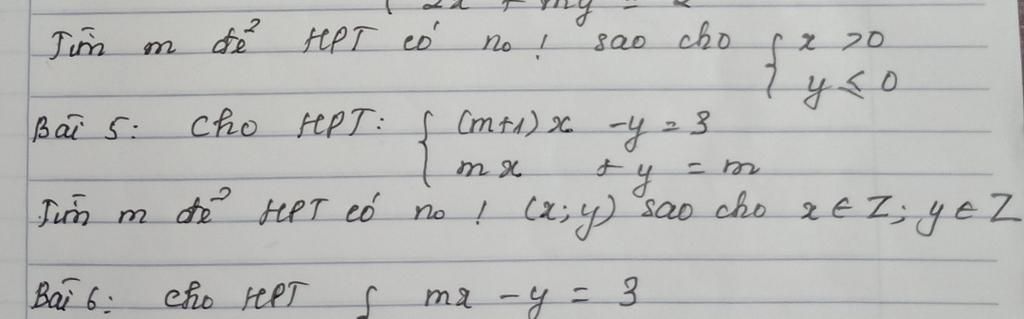 { 2x + my = 2
Tìm m để HPT có no ! sao cho { x > 0
y ≤ 0
Bài 5: Cho HPT: { (m+1)x - y = 3
mx + y = m
Tìm m để HPT có no ! (x; y) sao cho x ∈ Z; y ∈ Z
Bài 6: Cho HPT { mx - y = 3